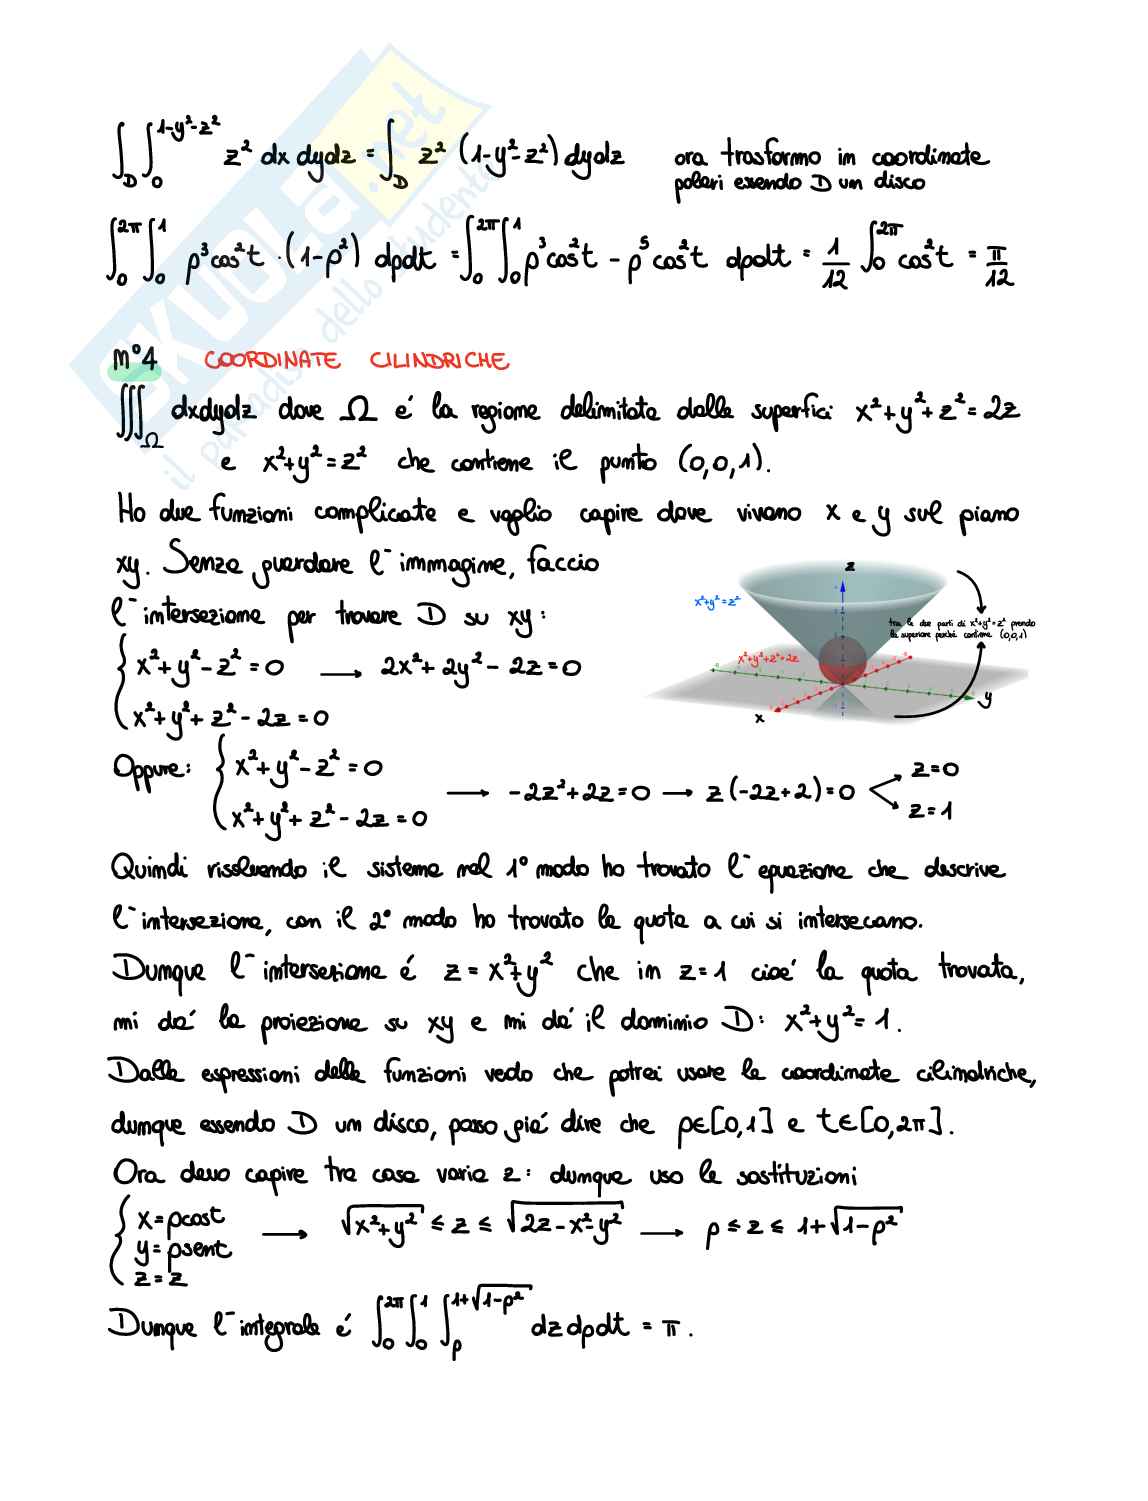 ∫_D ∫_0^{1-y²-z²} z² dx dydz = ∫_D z² (1-y²-z²) dydz ora trasformo in coordinate
polari essendo D un disco
∫_0^{2π} ∫_0^1 ρ³cos²t · (1-ρ²) dρdt = ∫_0^{2π} ∫_0^1 ρ³cos²t - ρ⁵cos²t dρdt = 1/12 ∫_0^{2π} cos²t = π/12
n°4 COORDINATE CILINDRICHE
∭_Ω dxdydz dove Ω é la regione delimitata dalle superfici x²+y²+z²=2z
e x²+y²=z² che contiene il punto (0,0,1).
Ho due funzioni complicate e voglio capire dove vivono x e y sul piano
xy. Senza guardare l'immagine, faccio
l'intersezione per trovare D su xy:
{ x²+y²-z²=0 → 2x²+2y²-2z=0
x²+y²+z²-2z=0
z
x²+y²=z²
tra le due parti di x²+y²=z² prendo
la superiore perché contiene (0,0,1)
x²+y²+z²=2z
y
x
Oppure: { x²+y²-z²=0
x²+y²+z²-2z=0 → -2z²+2z=0 → z(-2z+2)=0
z=0
z=1
Quindi risolvendo il sistema nel 1° modo ho trovato l'equazione che descrive
l'intersezione, con il 2° modo ho trovato la quota a cui si intersecano.
Dunque l'intersezione é z=x²+y² che in z=1 cioe' la quota trovata,
mi da' la proiezione su xy e mi da' il dominio D: x²+y²=1.
Dalle espressioni delle funzioni vedo che potrei usare le coordinate cilindriche,
dunque essendo D un disco, posso giá dire che ρ∈[0,1] e t∈[0,2π].
Ora devo capire tra cosa varia z: dunque uso le sostituzioni
{ x=ρcost
y=ρsent
z=z
→ √(x²+y²) ≤ z ≤ √(2z-x²-y²) → ρ ≤ z ≤ 1+√(1-ρ²)
Dunque l'integrale é ∫_0^{2π} ∫_0^1 ∫_ρ^{1+√(1-ρ²)} dzdρdt = π.
SKUOLA.net
il paradiso dello studente